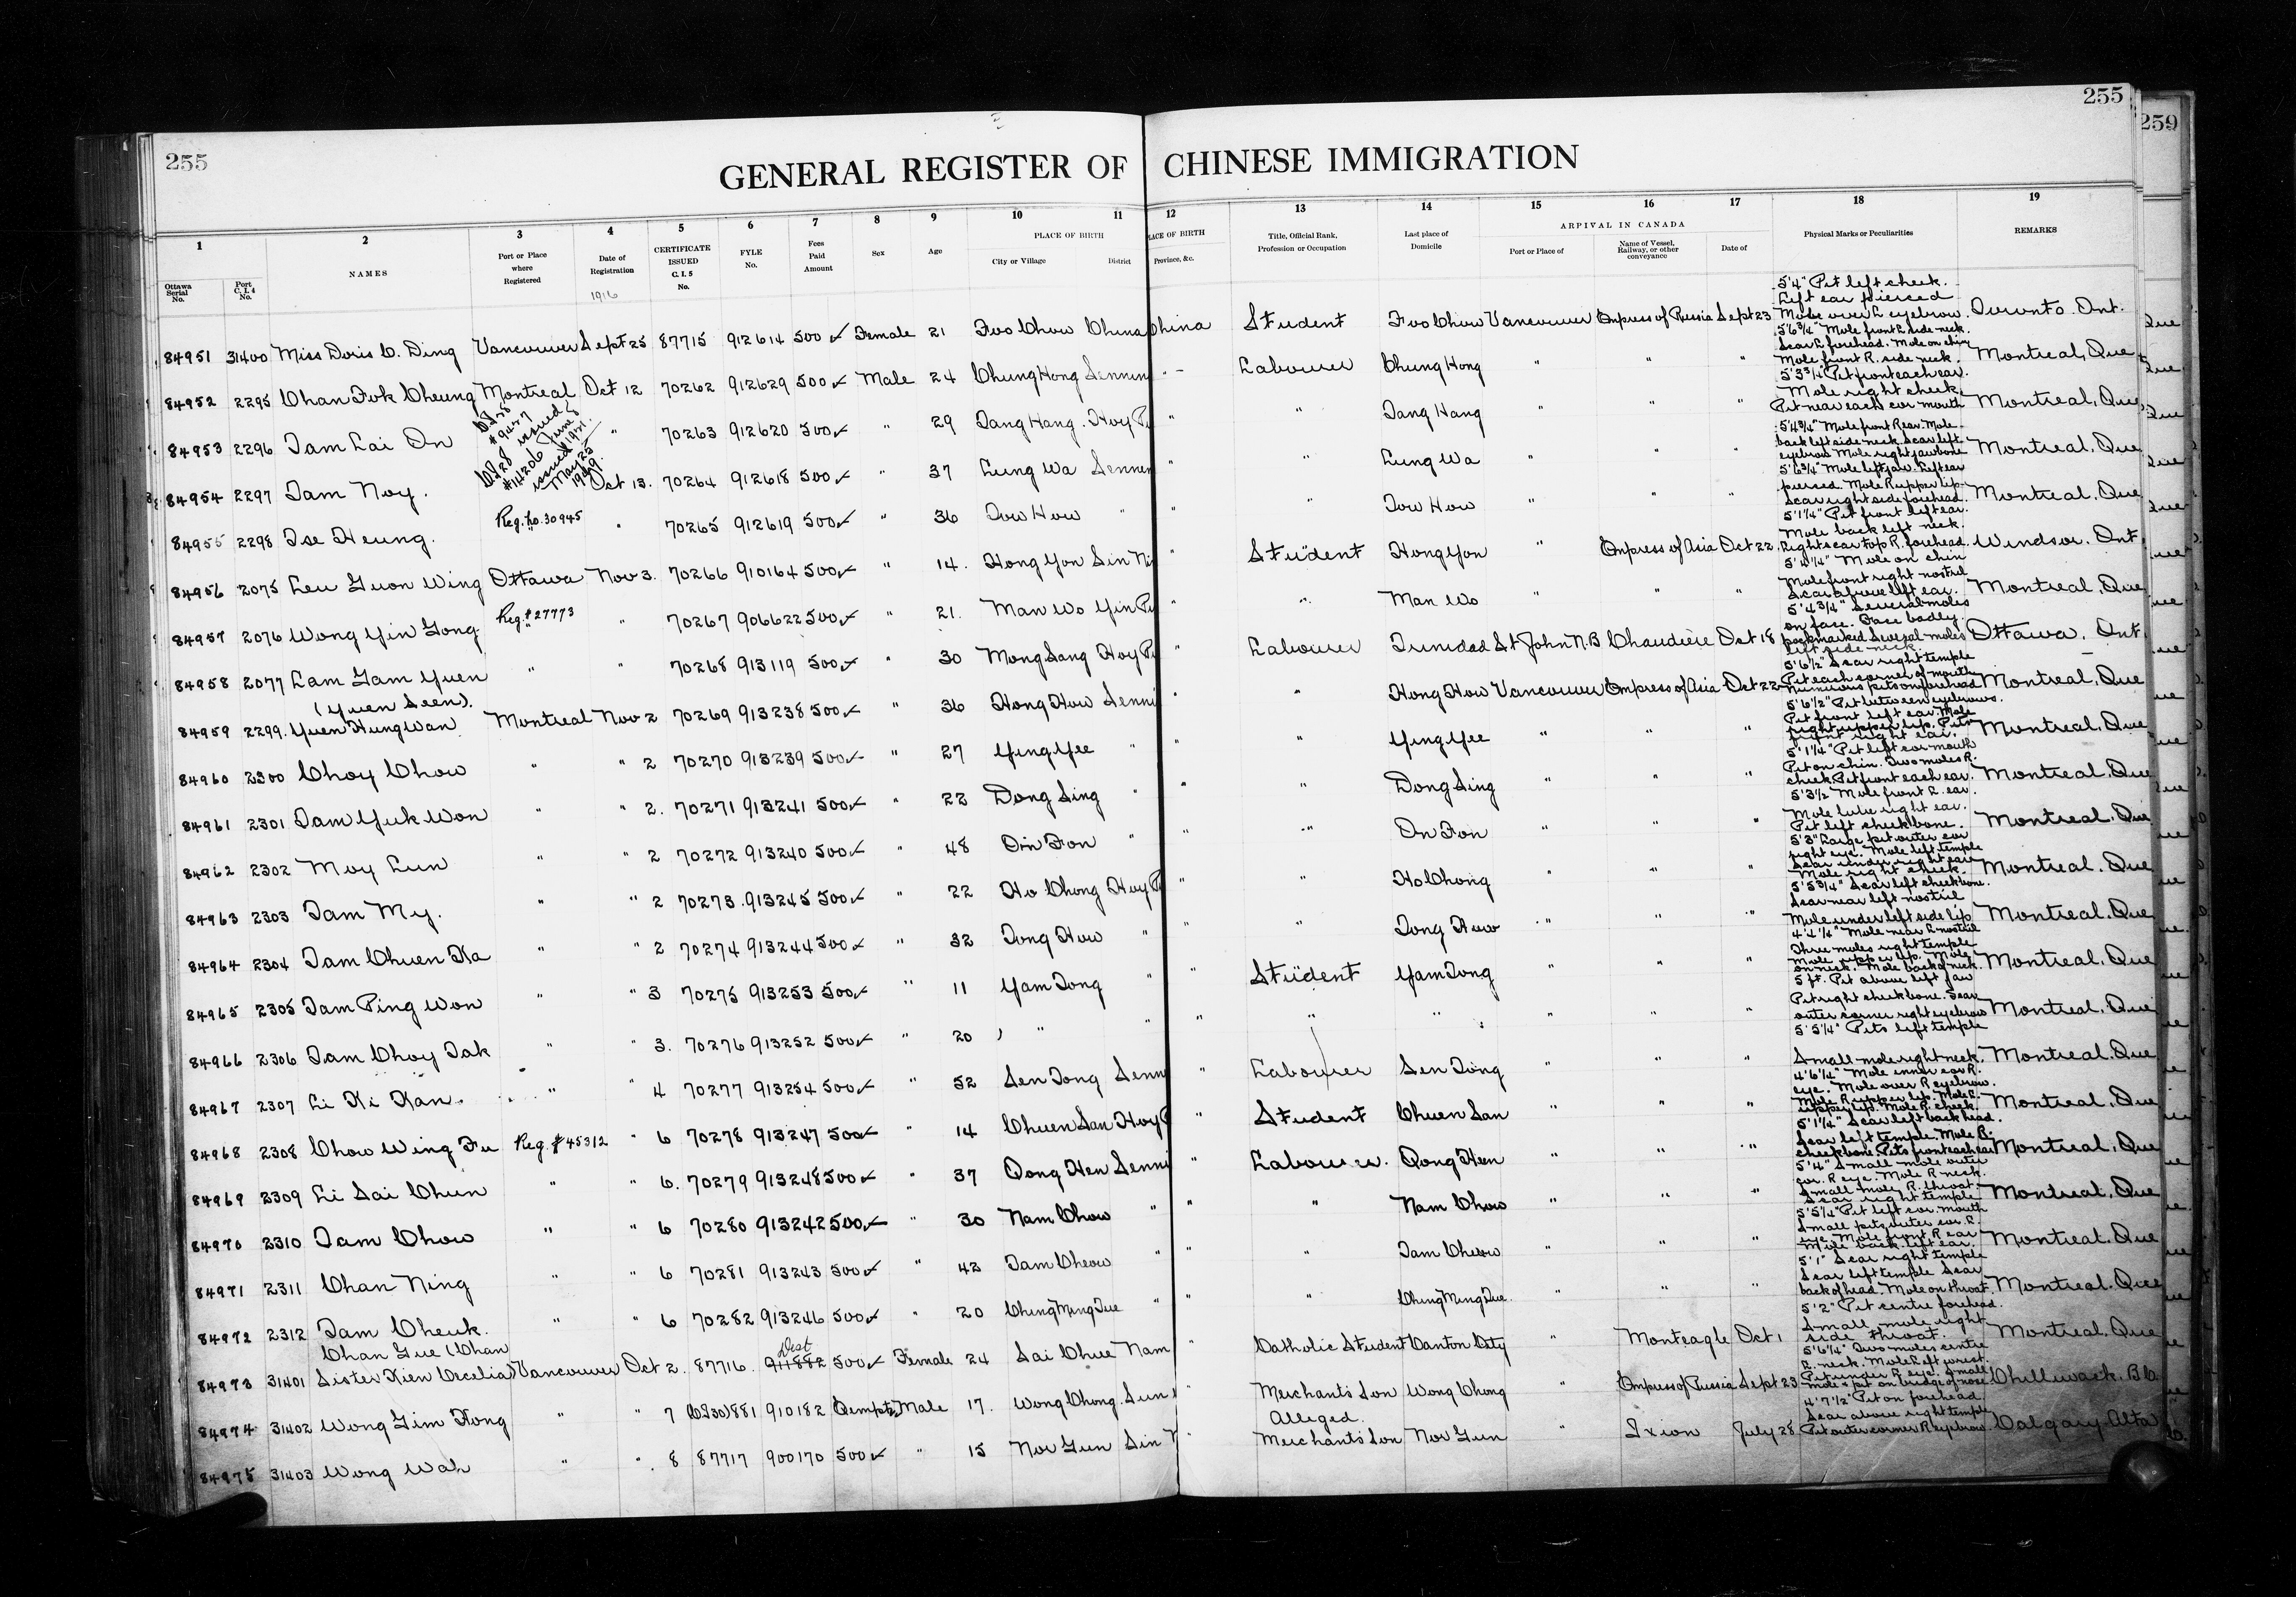 255
255
259
GENERAL REGISTER OF CHINESE IMMIGRATION
1 2 3 4 5 6 7 8 9 10 11 12 13 14 15 16 17 18 19
Ottawa Serial No. Port C. I. 4 No. NAMES Port or Place where Registered Date of Registration CERTIFICATE ISSUED C. I. 5 No. FYLE No. Fees Paid Amount Sex Age PLACE OF BIRTH City or Village District PLACE OF BIRTH Province, &c. Title, Official Rank, Profession or Occupation Last place of Domicile ARRIVAL IN CANADA Port or Place of Name of Vessel, Railway, or other conveyance Date of Physical Marks or Peculiarities REMARKS
1916
84951 31400 Miss Doris C. Ding Vancouver Sept 25 87715 912614 500 Female 21 Foo Chow China China Student Foo Chow Vancouver Empress of Russia Sept 23 5'4" Pit left cheek. Left ear pierced Mole over L eyebrow. Toronto Ont.
84952 2295 Chan Fok Cheung Montreal Oct 12 70262 912629 500 Male 24 Chung Hong Sennin " Labourer Chung Hong " " " 5'6 3/4" Mole front L side neck. Scar L forehead. Mole on chin Mole front R. side neck. Montreal, Que
84953 2296 Tam Lai On C.I.28 #9457 issued June 8 1921 " 70263 912620 500 " 29 Tang Hang. Hoy P " " Tang Hang " " 5'3 3/4" Pit front each ear. Mole right cheek Pit near each cor mouth Montreal, Que
84954 2297 Tam Noy. C.I.28 #14206 issued May 25 1929. Oct 13. 70264 912618 500 " 37 Lung Wa Sennin " " Lung Wa " " " 5'4 3/4" Mole front R ear. Mole back left side neck. Scar left eyebrow Mole right jawbone Montreal, Que
84955 2298 Tse Heung. Reg. No. 30945 " 70265 912619 500 " 36 Tow How " " " Tow How " " " 5'6 3/4" Mole left jaw. Left ear pierced. Mole R upper lip. Scar right side forehead. Montreal, Que
84956 2075 Leu Guon Wing Ottawa Nov 3. 70266 910164 500 " 14. Hong Yon Sin Ni " Student Hong Yon " Empress of Asia Oct 22 5'1 1/4" Pit front left ear. Mole back left neck. Right scar top R. forehead. Windsor. Ont
84957 2076 Wong Yin Gong Reg. # 27773 " 70267 906622 500 " 21. Man Wo Yin P " " Man Wo " " " 5'4 1/4" Mole on chin Mole front right nostril Scar above left ear. Montreal, Que
84958 2077 Lam Gam Yuen " " 70268 913119 500 " 30 Mong Sang Hoy P " Labourer Trinidad St John N.B Chaudiere Oct 18 5'4 3/4" Several moles on face. Face badly pockmarked Several moles left side neck. Ottawa, Ont
(Yuen Seen).
84959 2299. Yuen Hung Wan Montreal Nov 2 70269 913238 500 " 36 Hong How Senni " " Hong How Vancouver Empress of Asia Oct 22 5'6 1/2" Scar right temple Pit each corner of mouth Numerous pits on forehead Montreal, Que
84960 2300 Choy Chow " " 2 70270 913239 500 " 27 Ying Yee " " " Ying Yee " " " 5'6 1/2" Pit between eyebrows. Pit front left ear. Mole right upper lip. Pits front right ear. Montreal, Que
84961 2301 Tam Yuk Won " " 2. 70271 913241 500 " 22 Dong Sing " " " Dong Sing " " " 5'1 1/4" Pit left cor mouth Pit on chin. Two moles R. cheek. Pit front each ear. Montreal, Que
84962 2302 Moy Lun " " 2 70272 913240 500 " 48 On Fon " " " On Fon " " " 5'3 1/2 Mole front L. ear. Mole lobe right ear. Pit left cheekbone. Montreal, Que
84963 2303 Tam My. " " 2 70273 913245 500 " 22 Ho Chong Hoy P " " Ho Chong " " " 5'3" Large pit outer cor right eye. Mole left temple Scar under right ear Mole right cheek. Montreal, Que
84964 2304 Tam Chuen Ka " " 2 70274 913244 500 " 32 Tong How " " " Tong How " " " 5'5 3/4" Scar left cheekbone. Scar near left nostril Mole under left side lip Montreal, Que
84965 2305 Tam Ping Won " " 3 70275 913253 500 " 11 Yam Tong " " Student Yam Tong " " " 4'4 1/4" Mole near L nostril Three moles right temple Mole upper lip. Mole on neck. Mole back of neck. Montreal, Que
84966 2306 Tam Choy Tak " " 3. 70276 913252 500 " 20 " " " " " " " " 5 ft. Pit above left jaw Pit right cheekbone. Scar outer corner right eyebrow Montreal, Que
84967 2307 Li Ki Kan. " " 4 70277 913254 500 " 52 Sen Tong Senn " Labourer Sen Tong " " " 5'5 1/4" Pits left temple Small mole right neck. Montreal, Que
84968 2308 Chow Wing Fu Reg. # 45312 " 6 70278 913247 500 " 14 Chuen San Hoy P " Student Chuen San " " " 4'6 1/4" Mole inner cor R. eye. Mole over R eyebrow. Mole R upper lip. Mole L. upper lip. Mole R. cheek. Montreal, Que
84969 2309 Li Sai Chun " " 6. 70279 913248 500 " 37 Qong Hen Senni " Labourer. Qong Hen " " " 5'1 1/4" Scar left back head. Scar left temple. Mole R. cheekbone. Pits front each ear Montreal, Que
84970 2310 Tam Chow " " 6 70280 913242 500 " 30 Nam Chow " " " Nam Chow " " " 5'4" Small mole outer cor. R eye. Mole R neck. Small mole R. throat. Scar right temple Montreal, Que
84971 2311 Chan Ning " " 6 70281 913243 500 " 42 Tam Cheow " " " Tam Cheow " " " 5'5 1/4" Pit left cor. mouth Small pits outer cor. R. eye. Mole front R ear Mole back left ear. Montreal. Que
84972 2312 Tam Cheuk. " " 6 70282 913246 500 " 20 Ching Ming Tue " " " Ching Ming Tue. " " " 5'1" Scar right temple Scar left temple Scar back of head. Mole on throat. Montreal. Que
Chan Gue (Chan
84973 31401 Sister Kien Cecelia) Vancouver Oct 2. 87716. 911882 Dest 500 Female 24 Sai Chue Nam " Catholic Student Canton City " Monteagle Oct 1 5'2" Pit centre forehead. Small mole right side throat. Montreal, Que
84974 31402 Wong Gim Kong " " 7 (C.I.30) 881 910182 Exempt Male 17. Wong Chong. Sun " Merchants Son Wong Chong " Empress of Russia Sept 23 5'6 1/4" Two moles centre R. neck. Mole left wrist. Pit under R eye. Small mole & pit on bridge of nose Chilliwack. B.C.
84975 31403 Wong Wah " " 8 87717 900170 500 " 15 Nov Gun Sin N Alleged. Merchants Son Nov Gun " Ixion July 28 4'7 1/2" Pit on forehead. Scar above right temple Pit outer corner R eyebrow Calgary Alta